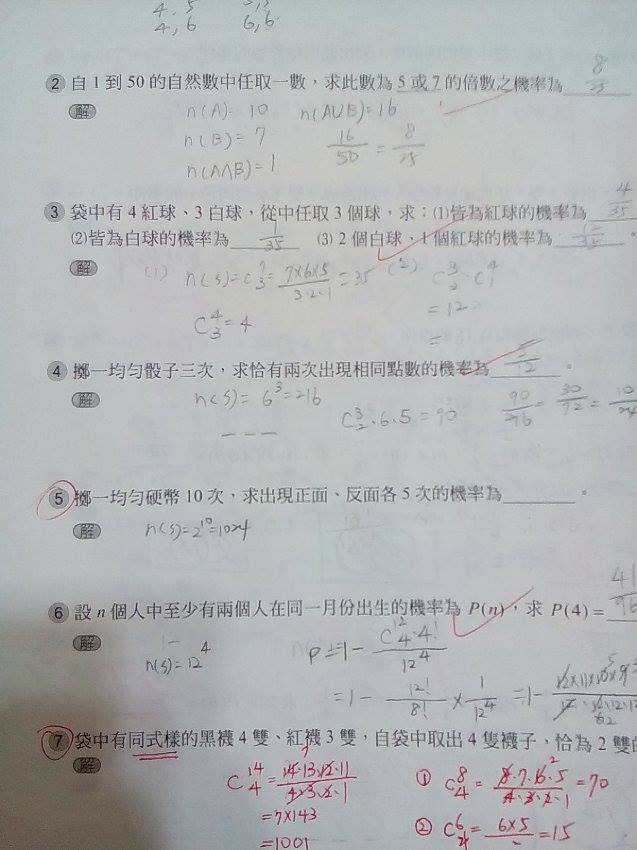 4,5
4,6 6,6
② 自 1 到 50 的自然數中任取一數,求此數為 5 或 7 的倍數之機率為 8/25
解 n(A)= 10 n(A∪B)=16
n(B)= 7 16/50 = 8/25
n(A∩B)=1
③ 袋中有 4 紅球、3 白球,從中任取 3 個球,求:(1)皆為紅球的機率為 4/35
(2)皆為白球的機率為 1/35 (3) 2 個白球、1 個紅球的機率為 12/35 。
解 (1) n(s)=C⁷₃=7×6×5/3·2·1=35 (2) C³₂·C⁴₁
C⁴₃=4 =12
=
④ 擲一均勻骰子三次,求恰有兩次出現相同點數的機率為 5/12 。
解 n(S)= 6³=216 C³₂·6·5=90 90/216= 30/72= 10/24
⑤ 擲一均勻硬幣 10 次,求出現正面、反面各 5 次的機率為 。
解 n(s)=2¹⁰=1024
⑥ 設 n 個人中至少有兩個人在同一月份出生的機率為 P(n),求 P(4) = 41/96
解 1-
n(s)=12⁴ P=1- C¹²₄·4!/12⁴
=1- 12!/8! × 1/12⁴ =1-
⑦ 袋中有同式樣的黑襪 4 雙、紅襪 3 雙,自袋中取出 4 隻襪子,恰為 2 雙的
解 C¹⁴₄=14·13·12·11/4·3·2·1 ① C⁸₄= 8·7·6·5/4·3·2·1=70
=7×143 ② C⁶₄= 6×5/2=15
=1001